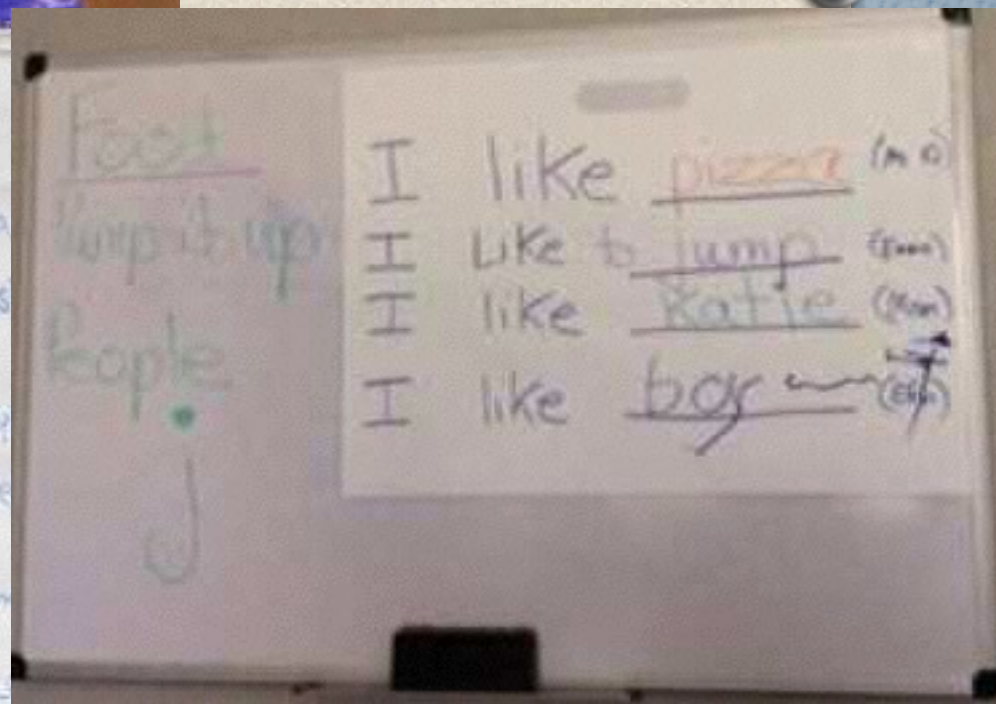 Food
Jump it up
People
J
I like pizza
I Like to jump
I like Katie
I like boy